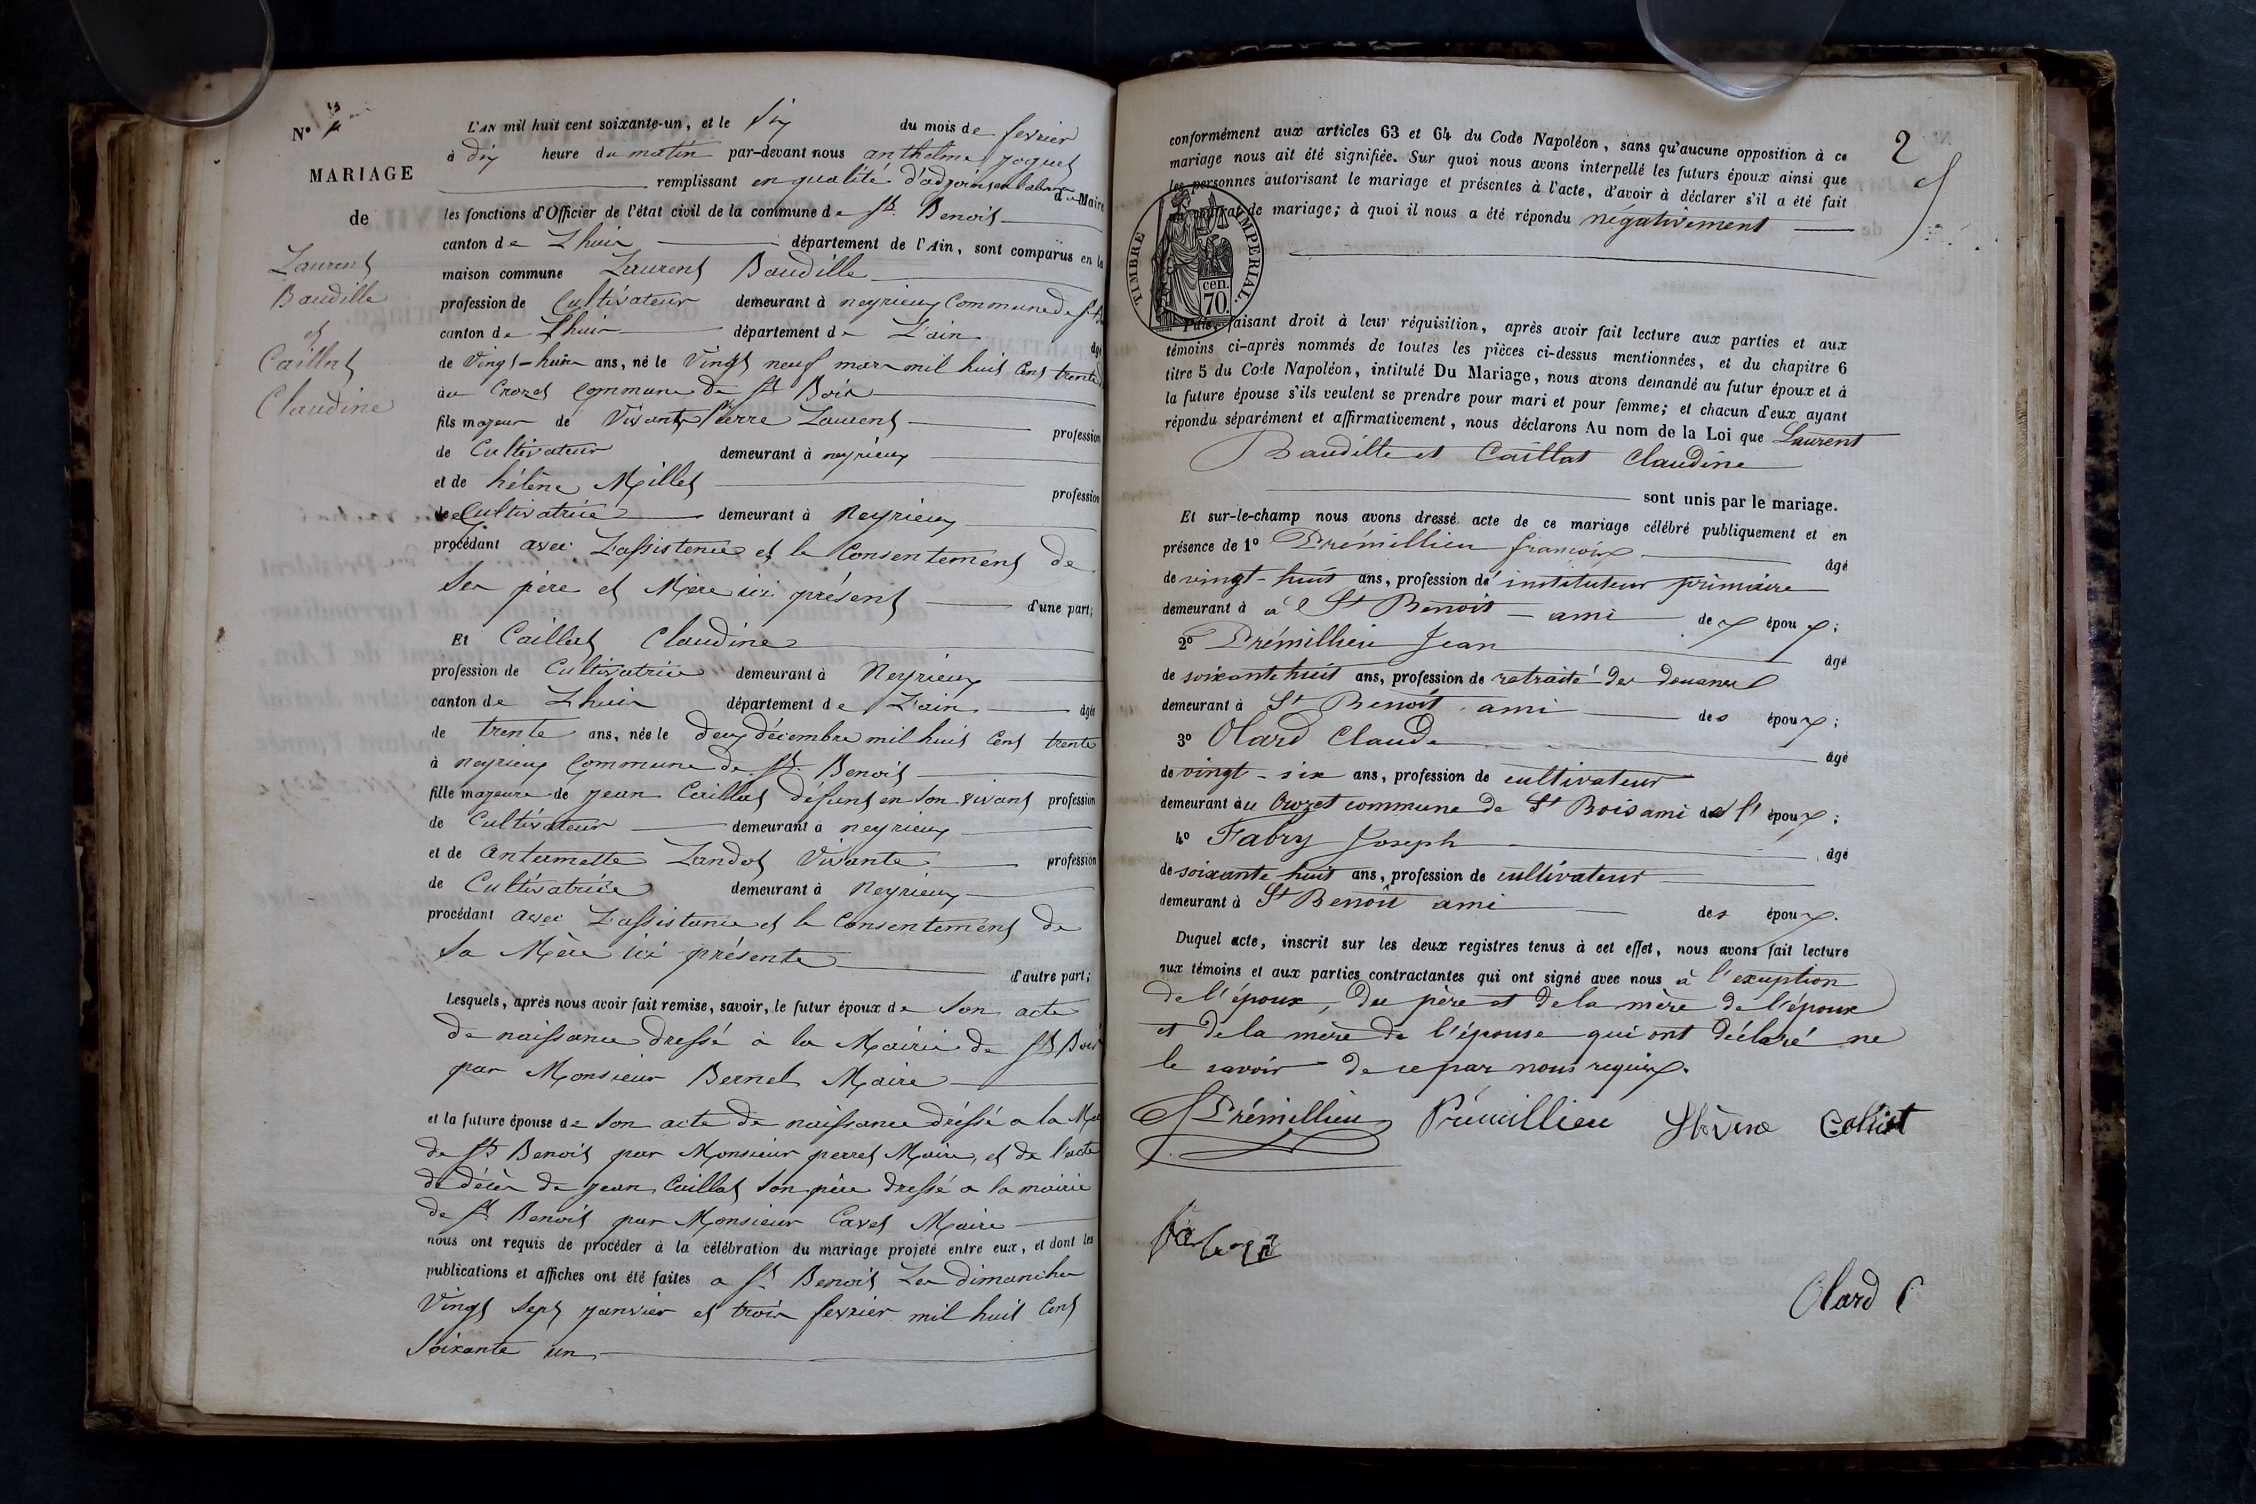 N° 1
MARIAGE
de
Laurent
Baudille
et
Caillat
Claudine
L'AN mil huit cent soixante-un, et le Six du mois de fevrier
à dix heure du matin par-devant nous anthelme joguet
remplissant en qualité d'adjoint en l'absence du Maire
les fonctions d'Officier de l'état civil de la commune de St Benoit
canton de Lhuis département de l'Ain, sont comparus en la
maison commune Laurent Baudille
profession de Cultivateur demeurant à neyrieux Commune de St
canton de Lhuis département de L'ain âgé
de Vingt-huit ans, né le Vingt neuf mars mil huit Cent trente
au Crozet Commune de St Bois
fils majeur de Vivants Pierre Laurent profession
de Cultivateur demeurant à neyrieux
et de hélène Millet profession
de Cultivatrice demeurant à Neyrieux
procédant avec L'assistence et le Consentement de
Ses père et Mère ici présent d'une part;
Et Caillat Claudine
profession de Cultivatrice demeurant à Neyrieux
canton de Lhuis département de L'ain âgée
de trente ans, née le deux décembre mil huit Cent trente
à neyrieux Commune de St Benoit
fille majeure de jean Caillat défunt en Son vivant profession
de Cultivateur demeurant à neyrieux
et de antumette Landot Vivante profession
de Cultivatrice demeurant à Neyrieux
procédant avec L'assistance et le Consentement de
Sa Mère ici présente d'autre part;
Lesquels, après nous avoir fait remise, savoir, le futur époux de Son acte
de naissance dressé à la Mairie de St Bois
par Monsieur Bernet Maire
et la future épouse de Son acte de naissance dréssé a la
de St Benoit par Monsieur perret Maire, et de l'acte
de décès de jean Caillat Son père dressé a la mairie
de St Benoit par Monsieur Cavet Maire
nous ont requis de procéder à la célébration du mariage projeté entre eux, et dont les
publications et affiches ont été faites a St Benoit Les dimanches
Vingt Sept janvier et trois fevrier mil huit Cent
Soixante un
2
conformément aux articles 63 et 64 du Code Napoléon, sans qu'aucune opposition à ce
mariage nous ait été signifiée. Sur quoi nous avons interpellé les futurs époux ainsi que
les personnes autorisant le mariage et présentes à l'acte, d'avoir à déclarer s'il a été fait
contrat de mariage; à quoi il nous a été répondu négativement
TIMBRE IMPERIAL.
cen.
70.
Puis, faisant droit à leur réquisition, après avoir fait lecture aux parties et aux
témoins ci-après nommés de toutes les pièces ci-dessus mentionnées, et du chapitre 6
titre 5 du Code Napoléon, intitulé Du Mariage, nous avons demandé au futur époux et à
la future épouse s'ils veulent se prendre pour mari et pour femme; et chacun d'eux ayant
répondu séparément et affirmativement, nous déclarons Au nom de la Loi que Laurent
Baudille et Caillat Claudine
sont unis par le mariage.
Et sur-le-champ nous avons dressé acte de ce mariage célébré publiquement et en
présence de 1° Prémillieu françois âgé
de vingt-huit ans, profession de instituteur primaire
demeurant à à St Benoit ami de x épou x;
2° Prémillieu Jean âgé
de soixante huit ans, profession de retraité des douanes
demeurant à St Benoit ami des époux;
3° Olard Claude âgé
de vingt-six ans, profession de cultivateur
demeurant au Crozet commune de St Bois ami de l' époux;
4° Fabry Joseph âgé
de soixante huit ans, profession de cultivateur
demeurant à St Benoît ami des époux.
Duquel acte, inscrit sur les deux registres tenus à cet effet, nous avons fait lecture
aux témoins et aux parties contractantes qui ont signé avec nous à l'exception
de l'époux, du père et de la mère de l'époux
et de la mère de l'épouse qui ont déclaré ne
le savoir de ce par nous requis.
f Prémillieu Prémillieu
Olard C